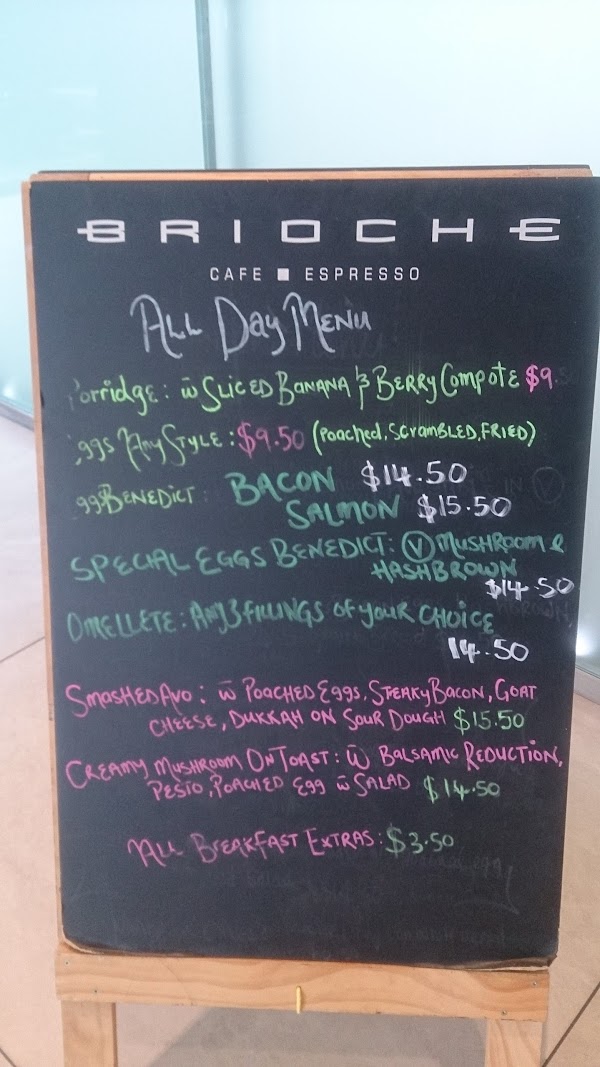 BRIOCHE
CAFE ■ ESPRESSO
ALL DAY MENU
orridge: w̄ SLICED BANANA & BERRY COMPOTE $9.
ggs ANY STYLE: $9.50 (Poached, SCRAMBLED, FRIED)
ggBENEDICT: BACON $14.50
SALMON $15.50
SPECIAL EGGS BENEDICT: Ⓥ MUSHROOM &
HASHBROWN
$14.50
OMELLETE: ANY 3 FILLINGS OF YOUR CHOICE
14.50
SMASHED AVO: w̄ POACHED EGGS, STEAKY BACON, GOAT
CHEESE, DUKKAH ON SOUR DOUGH $15.50
CREAMY MUSHROOM ON TOAST: w̄ BALSAMIC REDUCTION,
PESTO, POACHED EGG w̄ SALAD $14.50
ALL BREAKFAST EXTRAS: $3.50